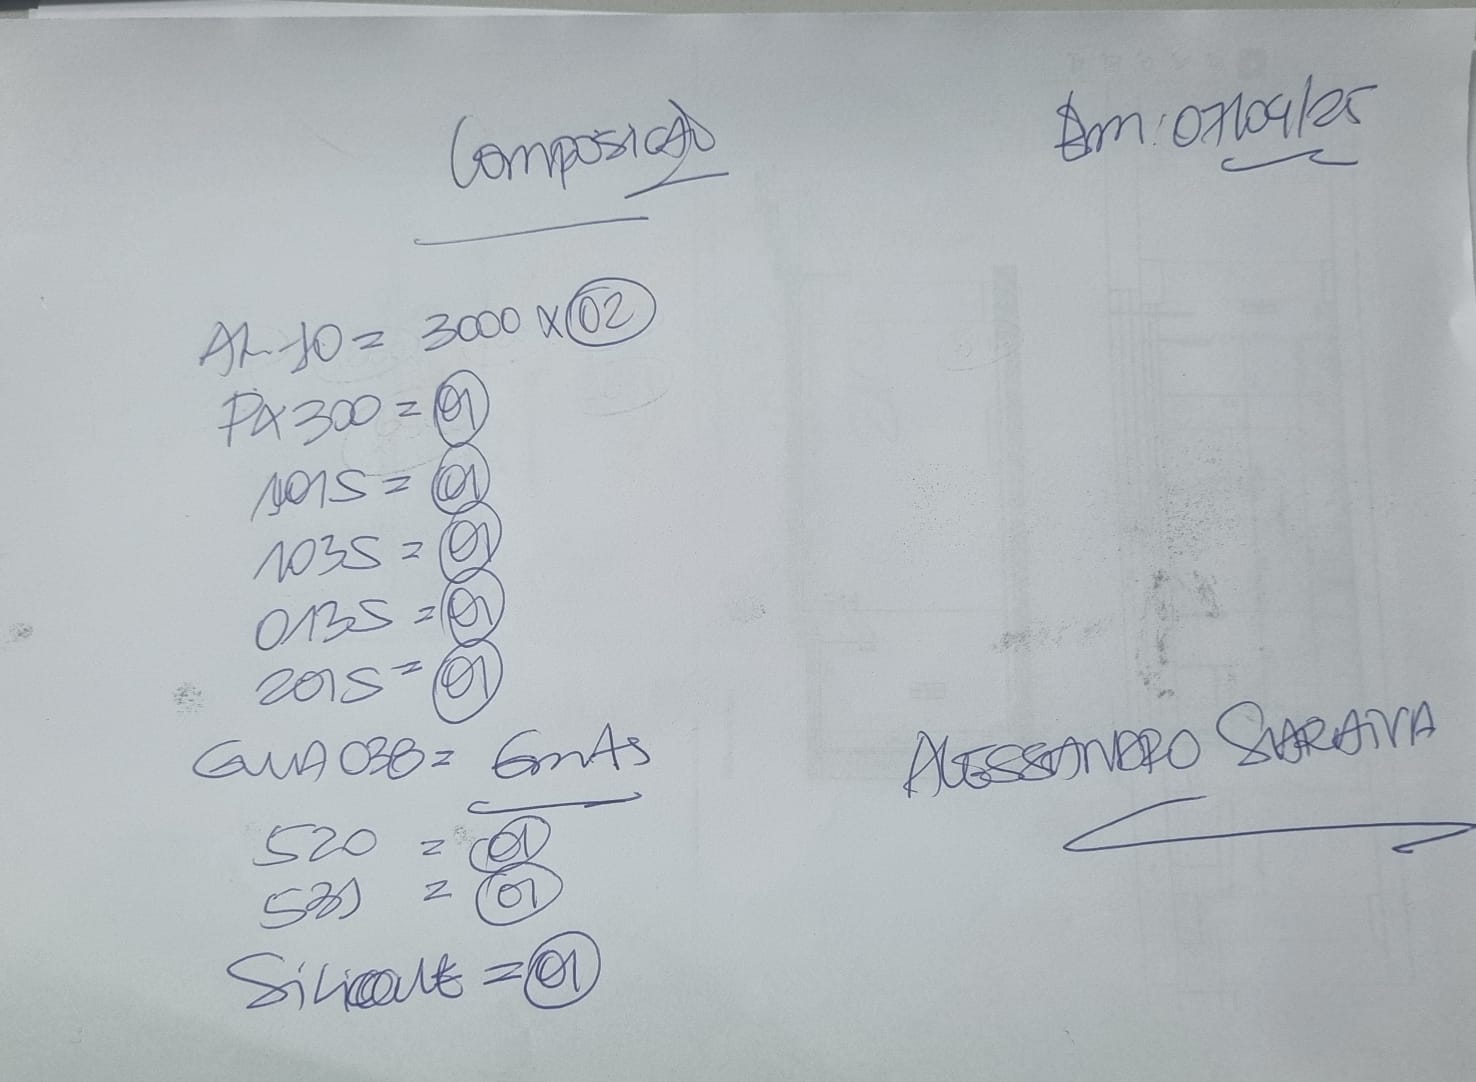 Composição
Em: 07/04/25
AL-10 = 3000 x 02
PX 300 = 01
101S = 01
103S = 01
013S = 01
201S = 01
038 = 6mts
520 = 01
= 01
Silicone = 01
ALESSANDRO SARAIVA